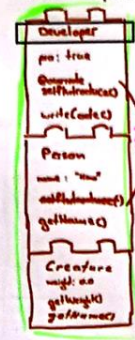 Developer
pro: true
@override
selfIntroduce()
writeCode()
Person
name: "
selfIntroduce()
getName()
Creature
weight: 0.0
getWeight()
getName()